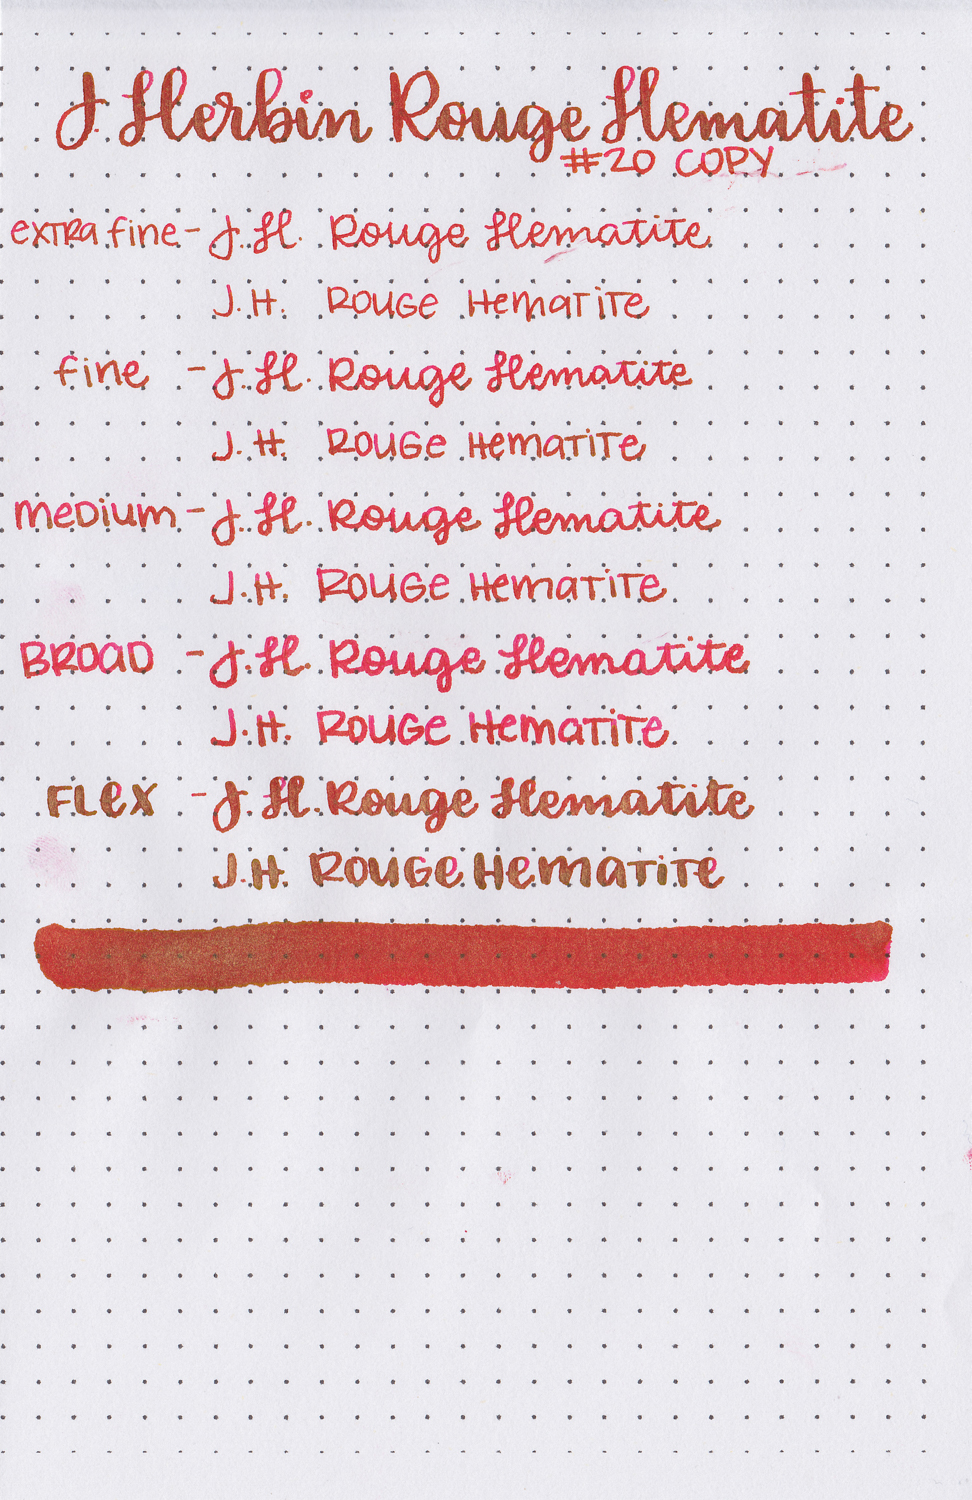 J Herbin Rouge Hematite
#20 COPY
extra fine - J.H. Rouge Hematite
J.H. Rouge Hematite
fine - J.H. Rouge Hematite
J.H. Rouge Hematite
medium - J.H. Rouge Hematite
J.H. Rouge Hematite
BROAD - J.H. Rouge Hematite
J.H. Rouge Hematite
FLEX - J.H. Rouge Hematite
J.H. Rouge Hematite